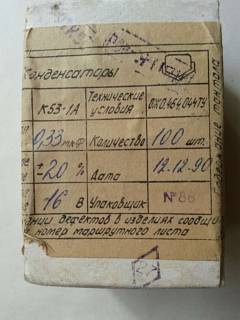 Конденсаторы
К53-1А Технические условия ОЖ0.464.044ТУ
0,33 мкф Количество 100 шт.
± 20 % Дата 12.12.90
16 В Упаковщик №86
дефектов в изделиях сообщи
номер маршрутного листа
Содержание тантала